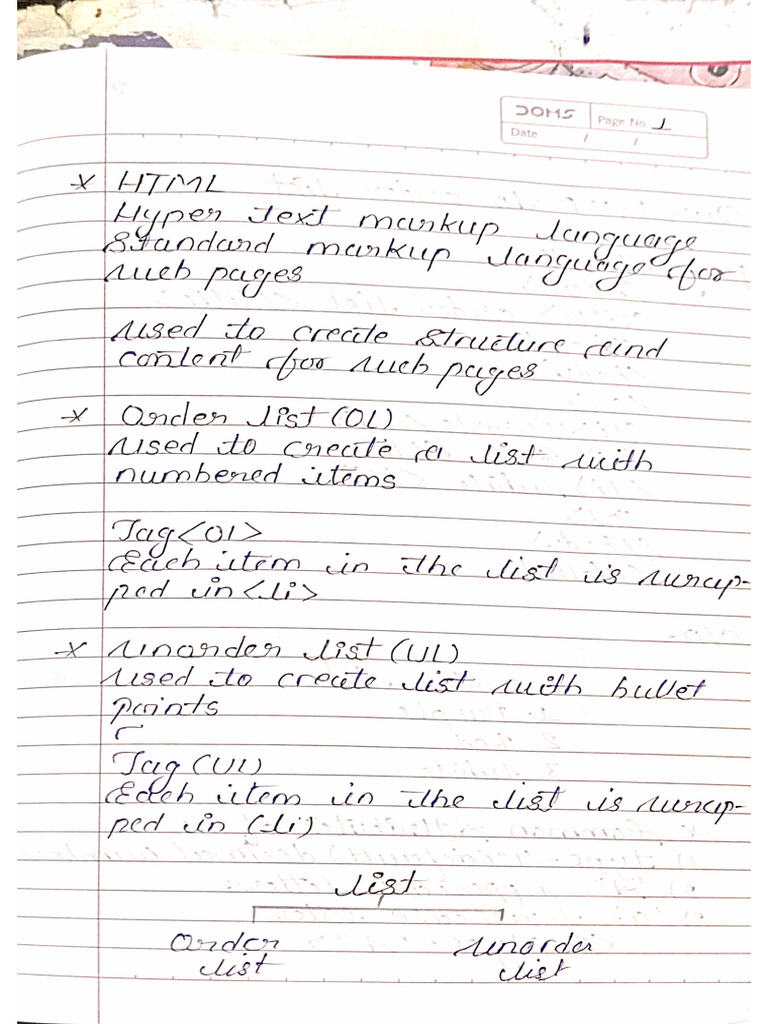 DOMS
Page No 1
Date / /
* HTML
Hyper text markup language
Standard markup language for
web pages
used to create structure and
content for web pages
* Order list (OL)
used to create a list with
numbered items
Tag <Ol>
Each item in the list is wrap-
ped in <li>
* Unorder list (UL)
used to create list with bullet
points
Tag (UL)
Each item in the list is wrap-
ped in (li)
list
Order Unorder
list list